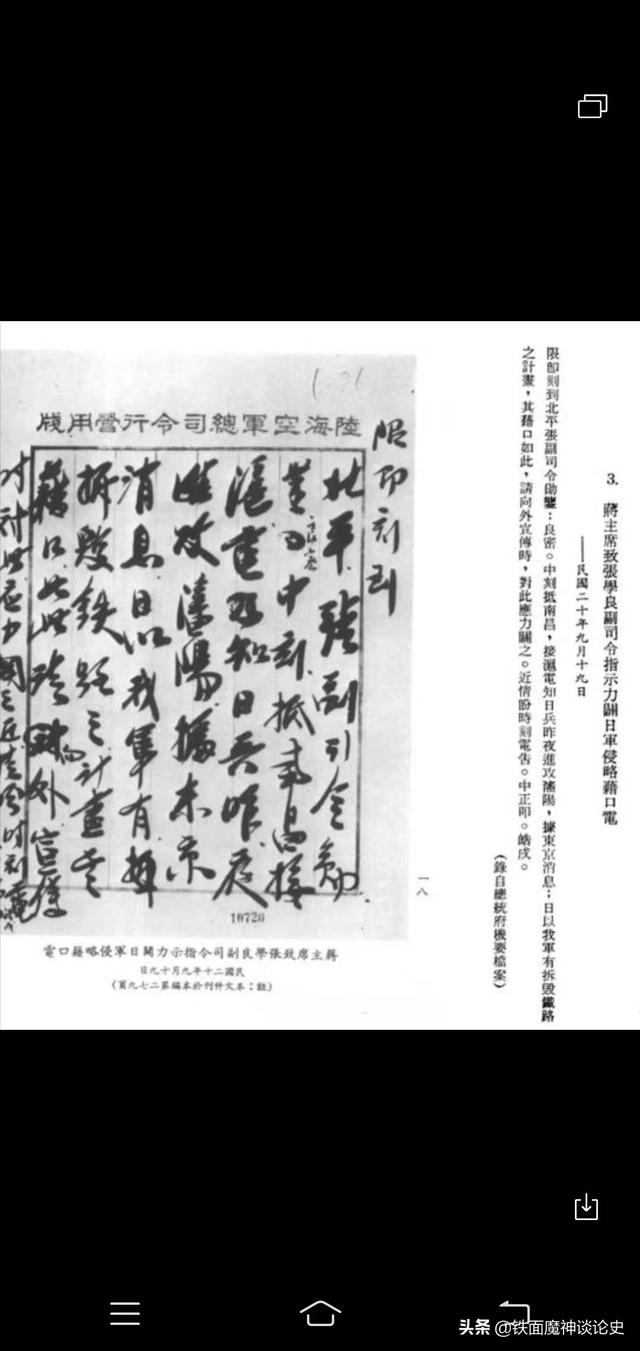 3. 蔣主席致張學良副司令指示力闢日軍侵略藉口電
——民國二十年九月十九日
限即刻到北平張副司令勛鑒：良密。中刻抵南昌，接滬電知日兵昨夜進攻瀋陽，據東京消息；日以我軍有拆毀鐵路
之計畫，其藉口如此，請向外宣傳時，對此應力闢之。近情盼時刻電告。中正叩。皓戌。
(錄自總統府機要檔案)
一八
陸海空軍總司令行營用牋
限即刻到
北平張副司令勛
中刻抵南昌接
滬電知日兵昨夜
進攻瀋陽據東京
消息日以我軍有
拆毀鐵路之計畫
藉口如此請向外宣傳
時對此應力闢之近情盼時刻電
10720
蔣主席致張學良副司令指示力闢日軍侵略藉口電
民國二十年九月十九日
(註：本文件刊於本編第二七九頁)
头条 @铁面魔神谈论史